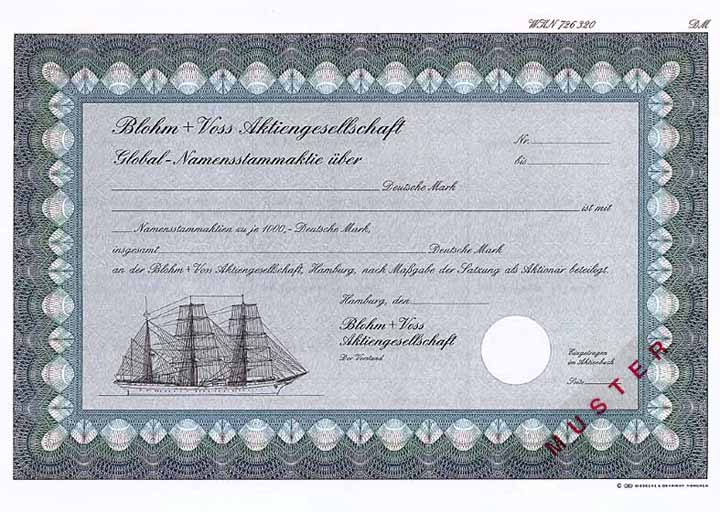 WKN 726 320 DM
Blohm + Voss Aktiengesellschaft
Nr.
Global-Namensstammaktie über
bis
Deutsche Mark
ist mit
Namensstammaktien zu je 1000,- Deutsche Mark,
insgesamt Deutsche Mark
an der Blohm + Voss Aktiengesellschaft, Hamburg, nach Maßgabe der Satzung als Aktionär beteiligt.
Hamburg, den
Blohm + Voss
Aktiengesellschaft
Der Vorstand
Eingetragen
im Aktienbuch
Seite
MUSTER
© GIESECKE & DEVRIENT MÜNCHEN